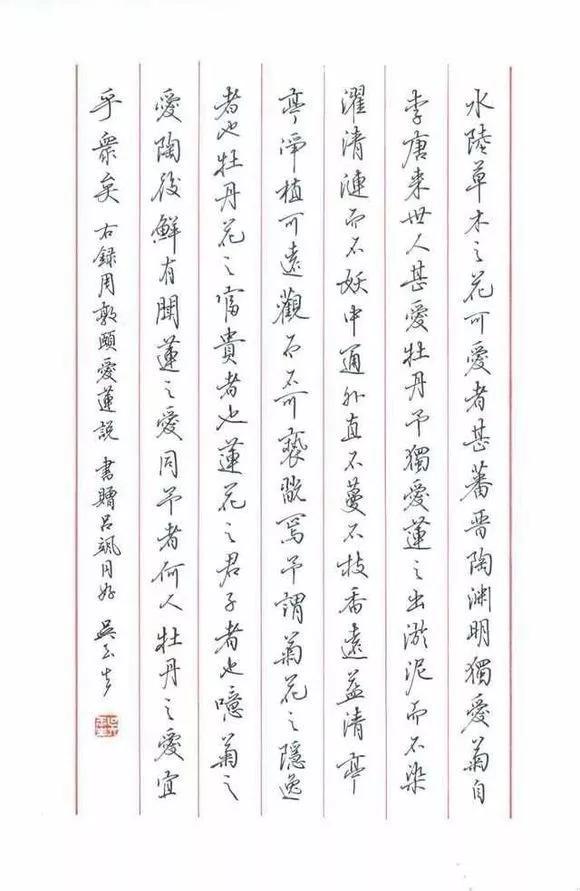 水陸草木之花可愛者甚蕃晋陶渊明獨愛菊自
李唐来世人甚愛牡丹予獨愛蓮之出淤泥而不染
濯清漣而不妖中通外直不蔓不枝香遠益清亭
亭淨植可遠觀而不可褻翫焉予謂菊花之隱逸
者也牡丹花之富貴者也蓮花之君子者也噫菊之
愛陶後鮮有聞蓮之愛同予者何人牡丹之愛宜
乎眾矣 右録周敦頤愛蓮説 書贈呂颯同好 吴玉生